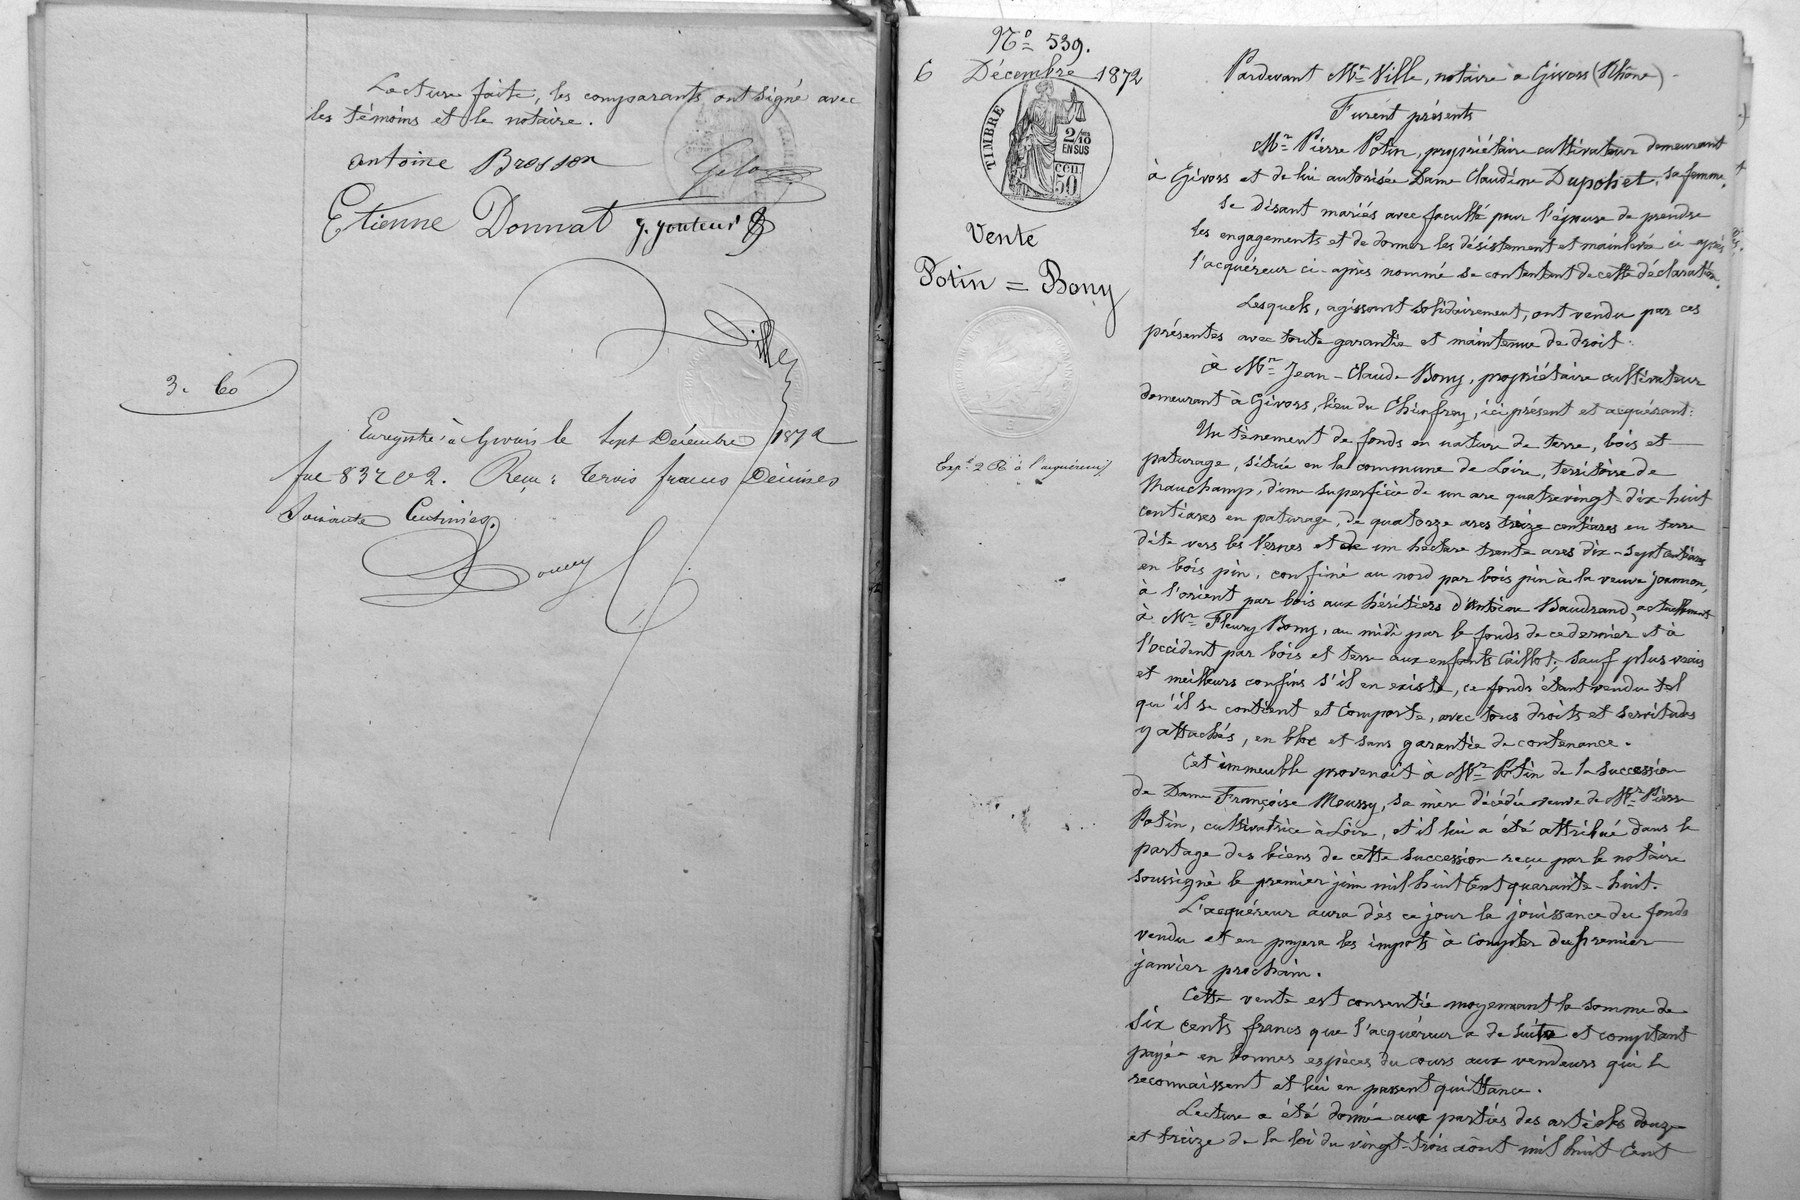 Lecture faite, les comparants ont signé avec
les témoins et le notaire.
antoine Brosson
Etienne Donnat
Ville
3. 60
Enregistré à Givors le sept Décembre 1872
fol 83 V 2. Reçu: trois francs Décimes
soixante Centimes.
N° 539.
6 Décembre 1872
TIMBRE
2/10
EN SUS
50 CEN
Vente
Potin = Bony
Expt 2 Ro à l'acquéreur
Pardevant Me Ville, notaire à Givors (Rhône)
Furent présents
Mr Pierre Potin, propriétaire cultivateur demeurant
à Givors et de lui autorisée Dame Claudine Dupohet, sa femme,
se disant mariés avec faculté pour l'épouse de prendre
les engagements et de donner les désistement et mainlevée ci-après
l'acquéreur ci-après nommé se contentant de cette déclaration.
Lesquels, agissant solidairement, ont vendu par ces
présentes avec toute garantie et maintenue de droit:
à Mr Jean-Claude Bony, propriétaire cultivateur
demeurant à Givors, lieu du Chinfrey, ici présent et acquérant:
Un tènement de fonds en nature de terre, bois et
paturage, située en la commune de Loire, territoire de
Mauchamp, d'une superficie de un are quatrevingt-dix-huit
centiares en paturage, de quatorze ares treize centiares en terre
dite vers les Vernes et de un hectare trente ares dix-sept centiares
en bois pin, confiné au nord par bois pin à la veuve Joannon,
à l'orient par bois aux héritiers d'Antoine Baudrand, actuellement
à Mr Fleury Bony, au midi par le fonds de ce dernier et à
l'occident par bois et terre aux enfants Caillot; sauf plus vrais
et meilleurs confins s'il en existe, ce fonds étant vendu tel
qu'il se contient et comporte, avec tous droits et servitudes
y attachés, en bloc et sans garantie de contenance.
Cet immeuble provenait à Mr Potin de la succession
de Dame Françoise Moussy, sa mère décédée veuve de Mr Pierre
Potin, cultivatrice à Loire, et il lui a été attribué dans le
partage des biens de cette succession reçu par le notaire
soussigné le premier juin mil huit cent quarante-huit.
L'acquéreur aura dès ce jour la jouissance du fonds
vendu et en payera les impots à compter du premier
janvier prochain.
Cette vente est consentie moyennant la somme de
six cents francs que l'acquéreur a de suite et comptant
payée en bonnes espèces du cours aux vendeurs qui le
reconnaissent et lui en passent quittance.
Lecture a été donnée aux parties des articles douze
et treize de la loi du vingt-trois août mil huit cent